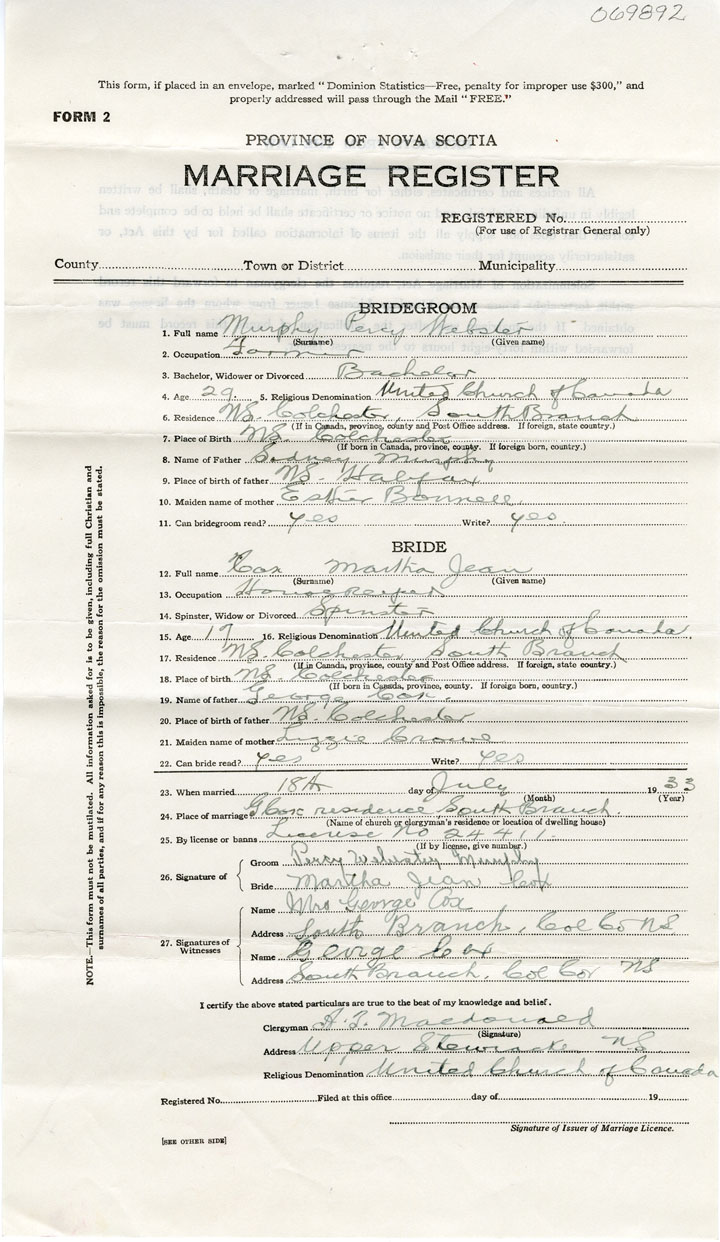 069892
This form, if placed in an envelope, marked "Dominion Statistics—Free, penalty for improper use $300," and
properly addressed will pass through the Mail "FREE."
FORM 2
PROVINCE OF NOVA SCOTIA
MARRIAGE REGISTER
REGISTERED No.
(For use of Registrar General only)
County Town or District Municipality
BRIDEGROOM
1. Full name Murphy Percy Webster
(Surname) (Given name)
2. Occupation Farmer
3. Bachelor, Widower or Divorced Bachelor
4. Age 29 5. Religious Denomination United Church of Canada
6. Residence NS. Colchester, South Branch
(If in Canada, province, county and Post Office address. If foreign, state country.)
7. Place of Birth NS. Colchester
(If born in Canada, province, county. If foreign born, country.)
8. Name of Father Sidney Murphy
9. Place of birth of father NS. Halifax
10. Maiden name of mother Esther Bonnell
11. Can bridegroom read? yes Write? yes
BRIDE
12. Full name Cox Martha Jean
(Surname) (Given name)
13. Occupation Housekeeper
14. Spinster, Widow or Divorced Spinster
15. Age 17 16. Religious Denomination United Church of Canada
17. Residence NS. Colchester South Branch
(If in Canada, province, county and Post Office address. If foreign, state country.)
18. Place of birth NS. Colchester
(If born in Canada, province, county. If foreign born, country.)
19. Name of father George Cox
20. Place of birth of father NS. Colchester
21. Maiden name of mother Lizzie Crowe
22. Can bride read? yes Write? yes
23. When married 18th day of July 1933
(Month) (Year)
24. Place of marriage G Cox residence South Branch.
(Name of church or clergyman's residence or location of dwelling house)
25. By license or banns License No 24411
(If by license, give number.)
26. Signature of
Groom Percy Webster Murphy
Bride Martha Jean Cox
27. Signatures of Witnesses
Name Mrs George Cox
Address South Branch, Col Co NS
Name George Cox
Address South Branch, Col Co NS
I certify the above stated particulars are true to the best of my knowledge and belief.
Clergyman Macdonald
(Signature)
Address Upper Stewiacke NS
Religious Denomination United Church of Canada
Registered No. Filed at this office day of 19
Signature of Issuer of Marriage Licence.
[SEE OTHER SIDE]
NOTE.—This form must not be mutilated. All information asked for is to be given, including full Christian and
surnames of all parties, and if for any reason this is impossible, the reason for the omission must be stated.